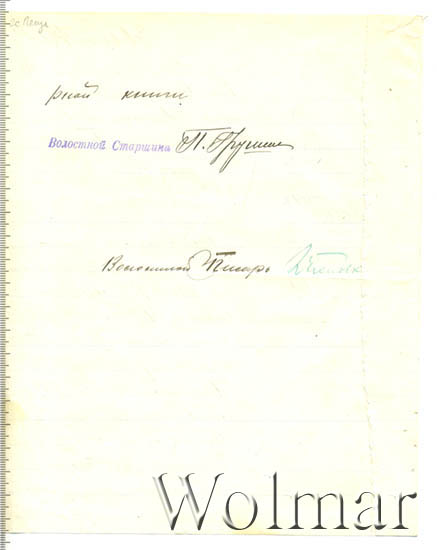 рной книги.
Волостной Старшина П.
Волостной Писарь
Wolmar